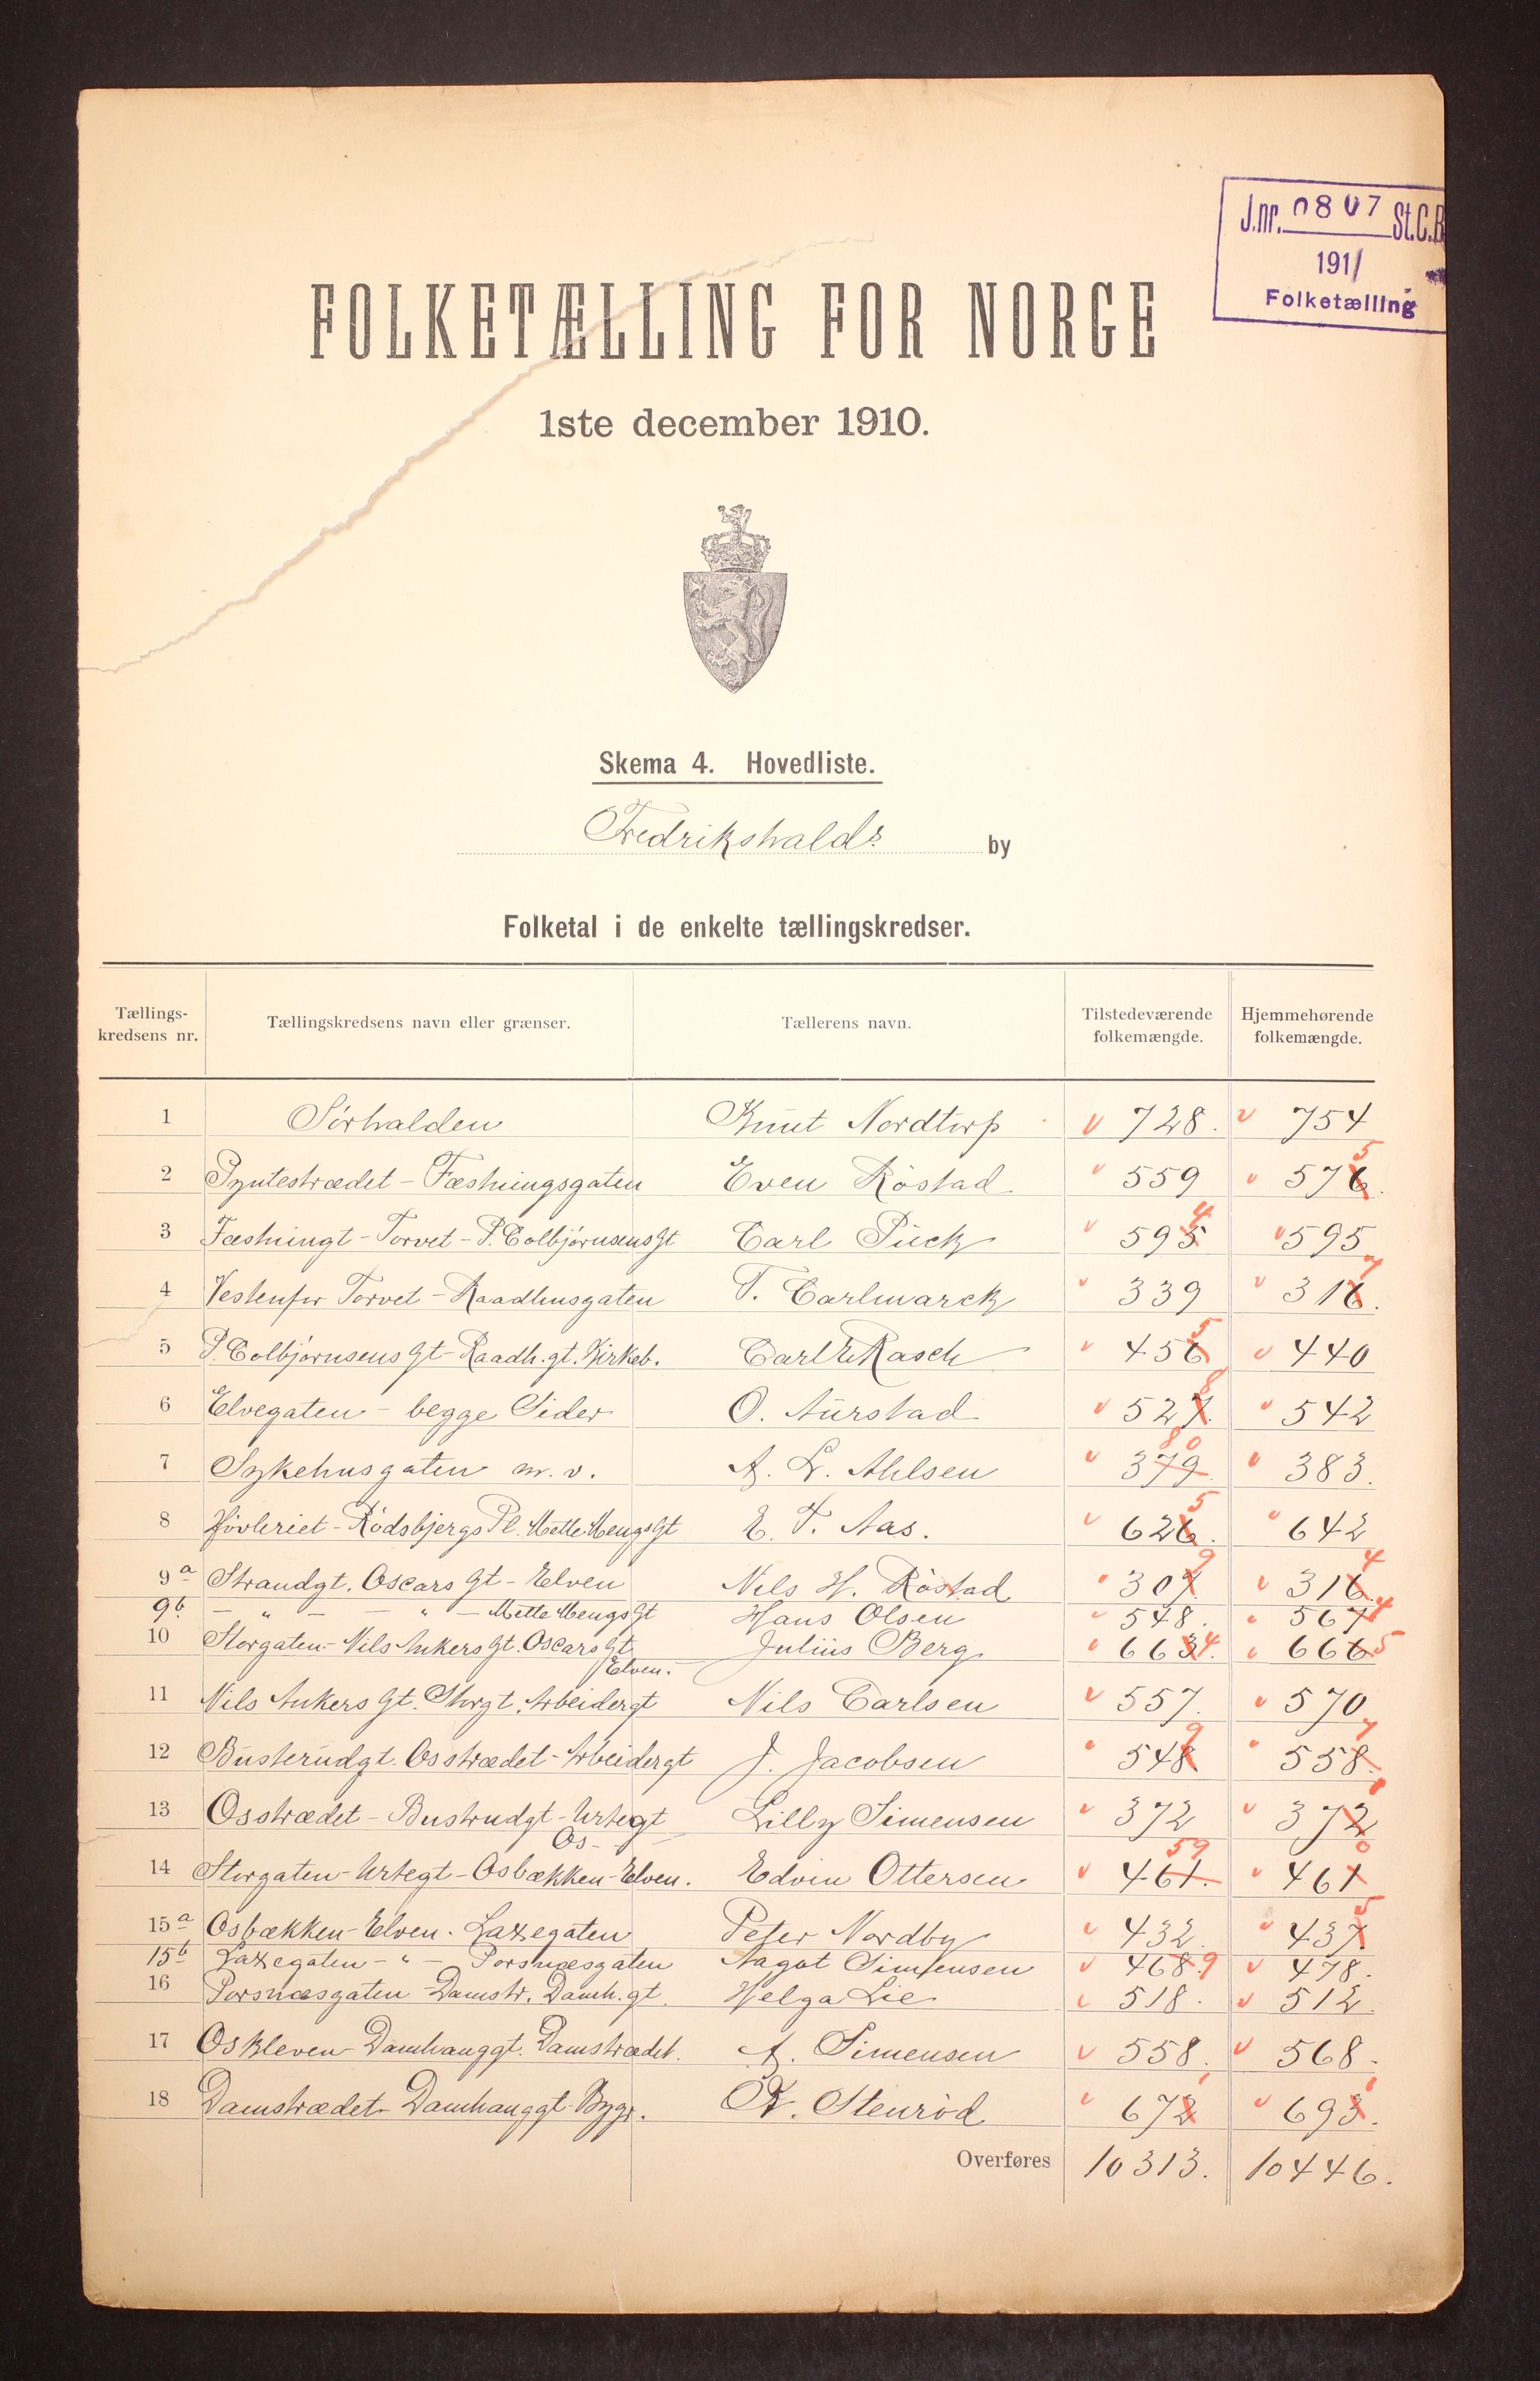 J.nr. 0807 St.C.B
1911
Folketælling
FOLKETÆLLING FOR NORGE
1ste december 1910.
Skema 4. Hovedliste.
Fredrikshalds by
Folketal i de enkelte tællingskredser.
Tællings-kredsens nr. Tællingskredsens navn eller grænser. Tællerens navn. Tilstedeværende folkemængde. Hjemmehørende folkemængde.
1 Sörhalden Knut Nordtorp v 728. v 754
2 Pyntestrædet - Fæstningsgaten Even Röstad v 559 v 576. 5
3 Fæstningt - Torvet - P. Colbjörnsens Gt Carl Pück v 595 4 v 595
4 Vestenfor Torvet - Raadhusgaten T. Carlmarck v 339 v 316. 7
5 P. Colbjörnsens Gt - Raadh.gt. Kirkeb. Carl Rasch v 456 5 v 440
6 Elvegaten - begge Sider O. Aurstad v 527. 8 v 542
7 Sykehusgaten m.v. A. L. Ahlsen v 379. 80 v 383.
8 Hövleriet - Rödsbjergs Pl. Mette Mengs Gt E. T. Aas. v 626. 5 v 642
9a Strandgt. Oscars Gt - Elven Nils H. Röstad v 307 9 v 316. 4
9b. - " - - " - Mette Mengs Gt Hans Olsen v 548. v 567 4
10 Storgaten - Nils Ankers Gt. Oscars Gt Julius Berg v 663 4. v 666 5
Elven.
11 Nils Ankers Gt. Storgt. Arbeidergt Nils Carlsen v 557. v 570
12 Busterudgt. Osstrædet - Arbeidergt J. Jacobsen v 548 9 v 558. 7
13 Osstrædet - Bustrudgt - Urtegt Lilly Simensen v 372 v 372
Os-
14 Storgaten - Urtegt - Osbækken - Elven. Edvin Ottersen v 461. 59 v 461 0
15a Osbækken - Elven. Laxegaten Peter Nordby v 432. v 437 5
15b Laxegaten - " - Porsnæsgaten Aagot Simensen v 468. 9 v 478.
16 Porsnæsgaten Damstr. Damh.gt. Helga Lie v 518. v 512.
17 Oskleven Damhauggt. Damstrædet. A. Simensen v 558. v 568.
18 Damstrædet - Damhauggt - Bygr. Kr. Stenröd v 672 v 693.
Overføres 10313. 10446.